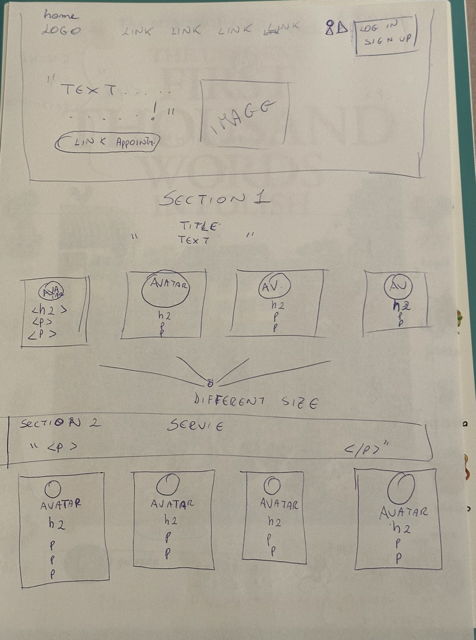 home
LOGO LINK LINK LINK LINK LOG IN
SIGN UP
" TEXT .....
..... ! "
LINK APPOINT
IMAGE
SECTION 1
TITLE
" TEXT "
AVATAR
h2
P
P
AV.
h2
P
P
AV
h2
P
P
<h2>
<p>
<p>
DIFFERENT SIZE
SECTION 2 SERVIE
" <p> </p> "
AVATAR
h2
P
P
P
AVATAR
h2
P
P
P
AVATAR
h2
P
P
AVATAR
h2
P
P
P